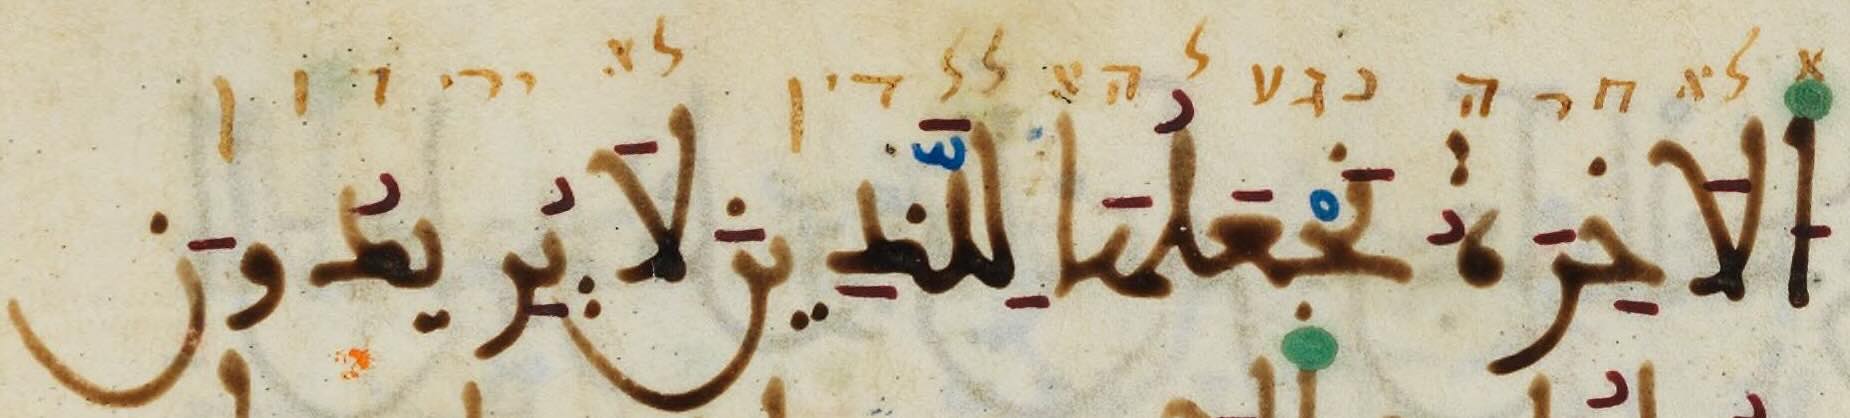 א לא חרה נגעל הא ללדין לא ירידון
اَلَاخِرَةُ نَجْعَلُهَا لِلَّذِينَ لَا يُرِيدُونَ